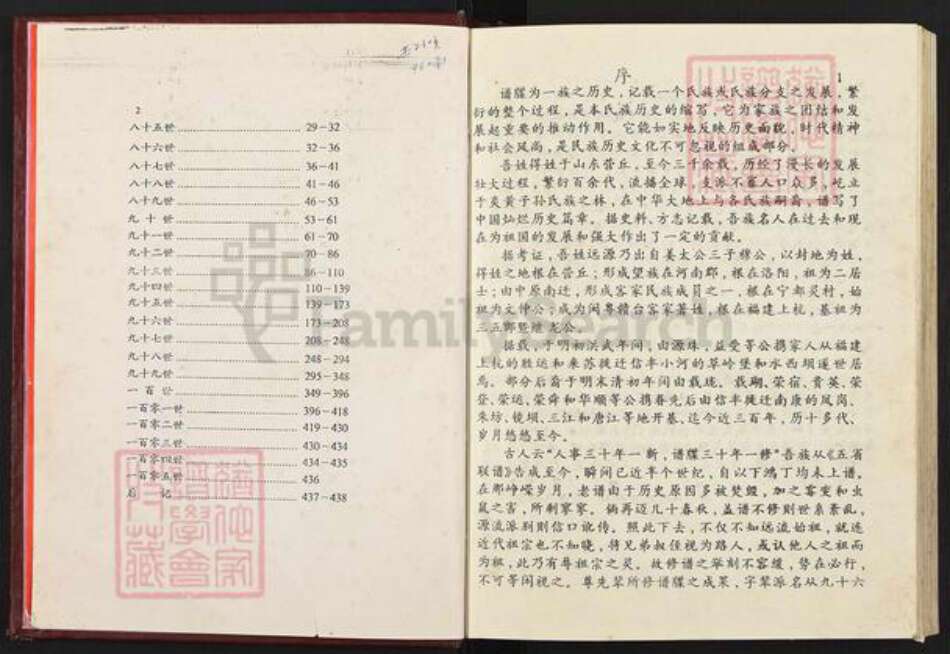 2
八十五世 29-32
八十六世 32-36
八十七世 36-41
八十八世 41-46
八十九世 46-53
九十世 53-61
九十一世 61-70
九十二世 70-86
九十三世 86-110
九十四世 110-139
九十五世 139-173
九十六世 173-208
九十七世 208-248
九十八世 248-294
九十九世 295-348
一百世 349-396
一百零一世 396-418
一百零二世 419-430
一百零三世 430-434
一百零四世 434-435
一百零五世 436
后记 437-438
FamilySearch
序 1
谱牒为一族之历史，记载一个民族或氏族分支之发展，繁
衍的整个过程，是本民族历史的缩写，它为家族之团结和发
展起重要的推动作用。它能如实地反映历史面貌，时代精神
和社会风尚，是民族历史文化不可忽视的组成部分。
吾姓得姓于山东营丘，至今三千余载，历经了漫长的发展
壮大过程，繁衍百余代，流播全球，支派不蕃人口众多，屹立
于炎黄子孙民族之林，在中华大地上与各民族嗣裔，谱写了
中国灿烂历史篇章。据史料、方志记载，吾族名人在过去和现
在为祖国的发展和强大作出了一定的贡献。
据考证，吾姓远源乃出自姜太公三子穆公，以封地为姓，
得姓之地根在营丘；形成望族在河南郡，根在洛阳，祖为二居
士；由中原南迁，形成客家民族成员之一，根在宁都灵村，始
祖为文仲公；成为闽粤赣台客家著姓，根在福建上杭，基祖为
三五郎暨继龙公。
据载，于明初洪武年间，由源珠、益受等公携家人从福建
上杭的胜运和来苏徙迁信丰小河的草岭堡和水西坝遥世居
焉。部分后裔于明末清初年间由载珑、载瑚、荣宿、贵英、荣
登、荣远、荣舜和华顺等公携眷先后由信丰徙迁南康的凤岗、
朱坊、镜坝、三江和唐江等地开基，迄今近三百年，历十多代，
岁月悠悠至今。
古人云“人事三十年一新，谱牒三十年一修”吾族从《五省
联谱》告成至今，瞬间已近半个世纪，自以下鸿丁均未上谱。
在那峥嵘岁月，老谱由于历史原因多被焚毁，加之霉变和虫
鼠之害，所剩寥寥。倘再迈几十春秋，盖谱不修则世系紊乱，
源流派别则信口讹传。照此下去，不仅不知远流始祖，就连
近代祖宗也不知晓，将兄弟叔侄视为路人，或认他人之祖而
为祖，此乃有辱祖宗之灵。故修谱之举刻不容缓，势在必行，
不可等闲视之。尊先辈所修谱牒之成菓，字辈派名从九十六